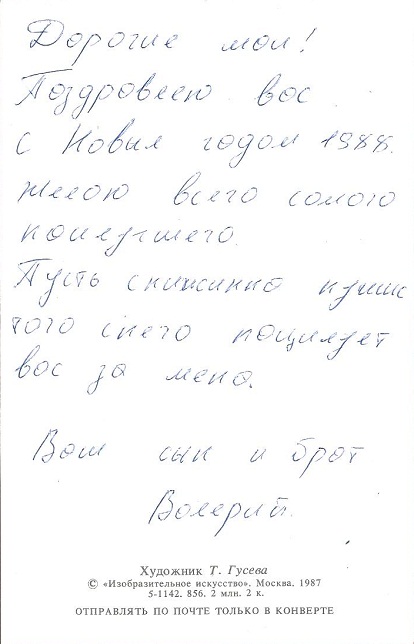 Дорогие мои!
Поздравляю вас
с Новым годом 1988.
Желаю всего самого
наилучшего.
Пусть снижинка пушис
того снега поцилует
вас за меня.
Ваш сын и брат
Валерий.
Художник Т. Гусева
© «Изобразительное искусство». Москва. 1987
5-1142. 856. 2 млн. 2 к.
ОТПРАВЛЯТЬ ПО ПОЧТЕ ТОЛЬКО В КОНВЕРТЕ